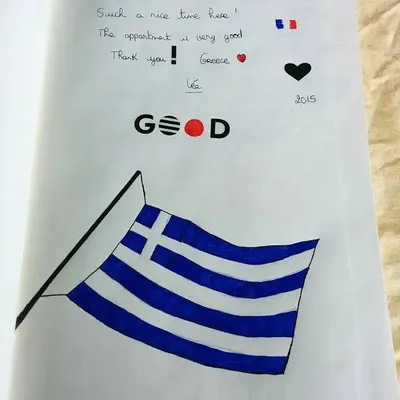 Such a nice time here !
The appartment is very good
Thank you ! Greece
Léa
2015
GOOD